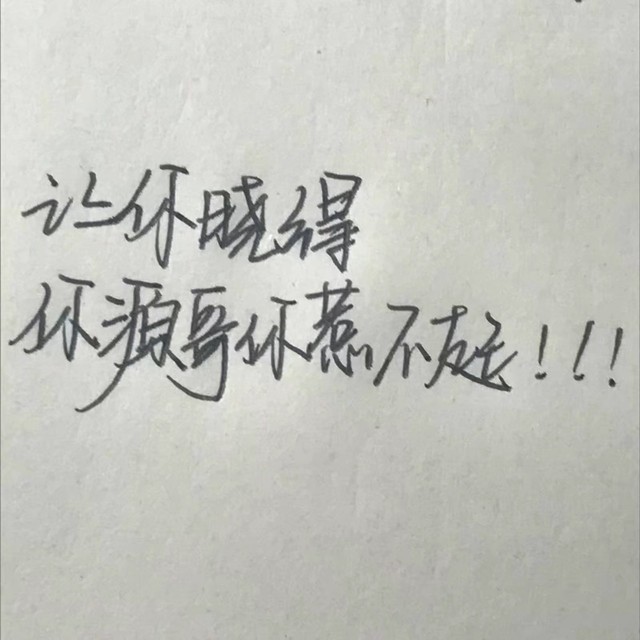 让你晓得
你源哥你惹不起!!!